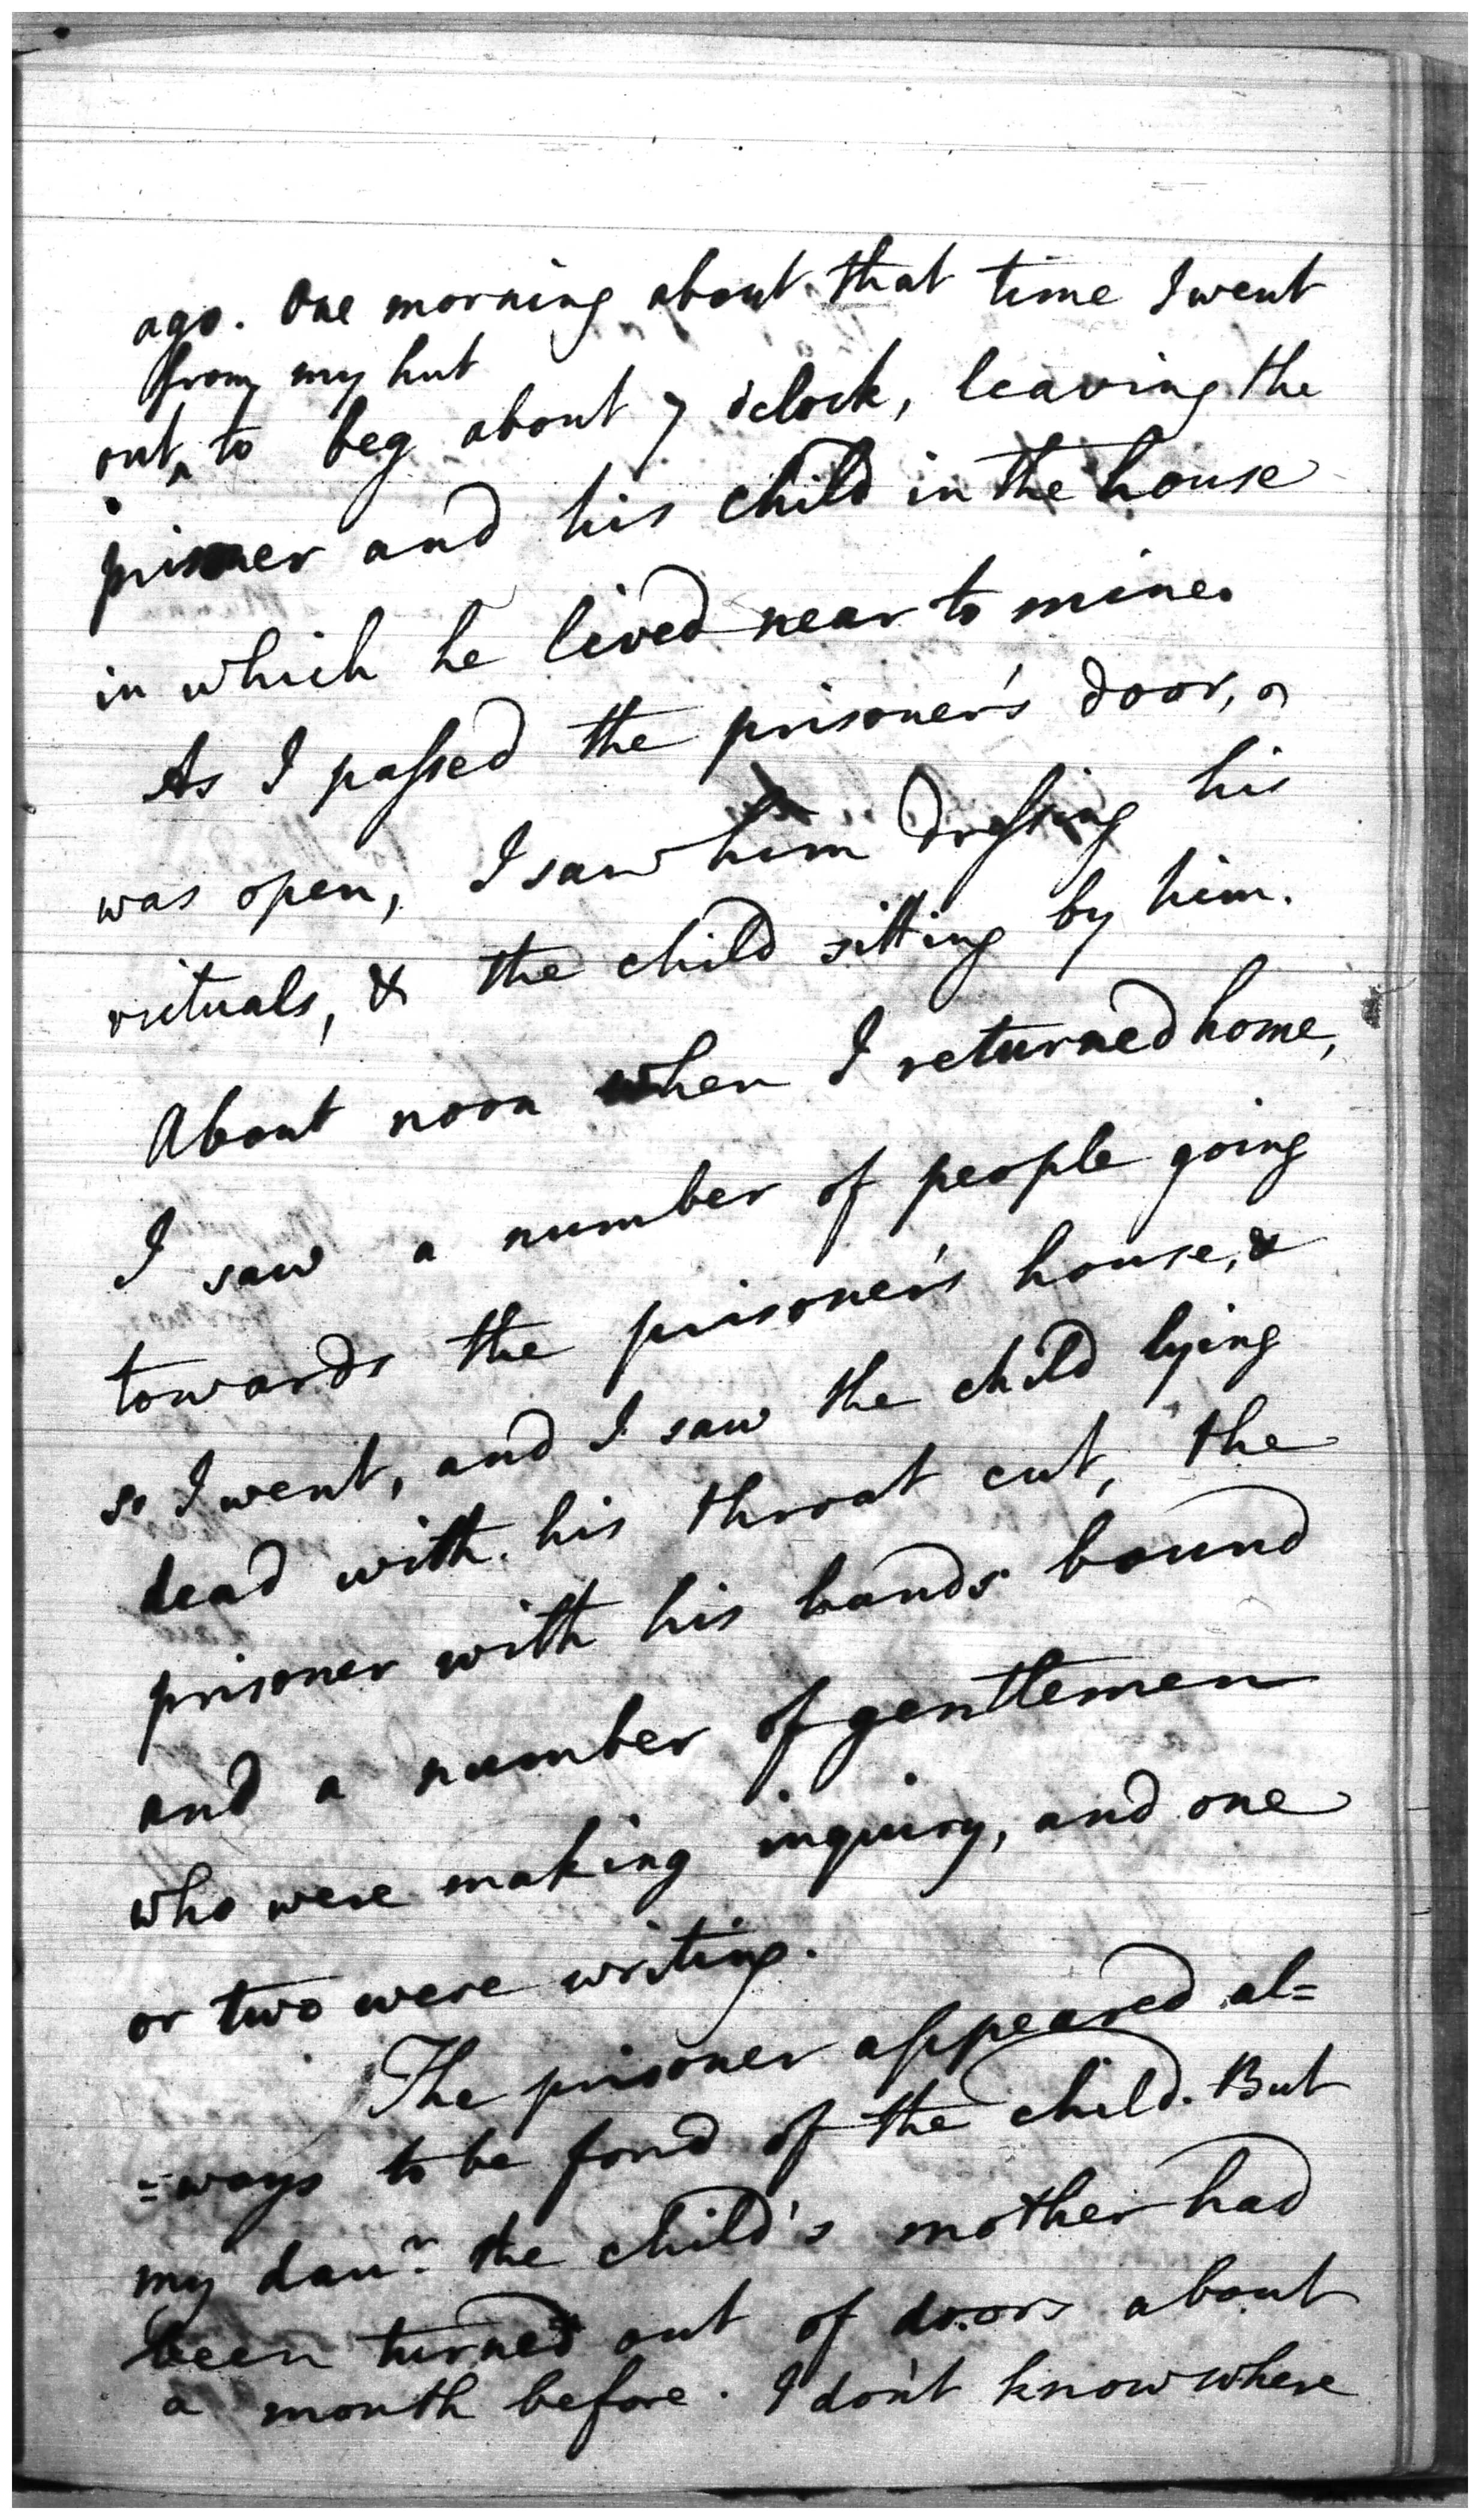 ago. One morning about that time I went
from my hut
out ^ to beg about 7 o'clock, leaving the
prisoner and his child in the house
in which he lived near to mine.
As I passed the prisoner's door,
was open, I saw him dressing his
victuals, & the child sitting by him.
About noon when I returned home,
I saw a number of people going
towards the prisoner's house, &
so I went, and I saw the child lying
dead with his throat cut, the
prisoner with his hands bound
and a number of gentlemen
who were making inquiry, and one
or two were writing.
The prisoner appeared al=
=ways to be fond of the child. But
my daur. the child's mother had
been turned out of doors about
a month before. I don't know where